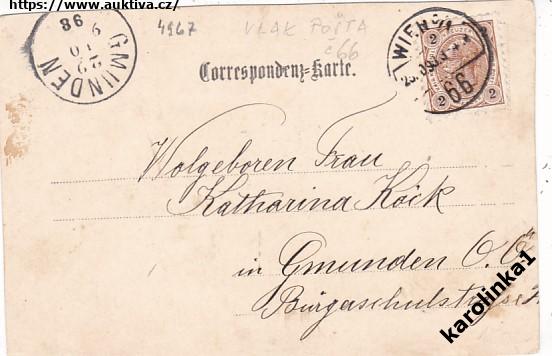 https://www.auktiva.cz/
4967
VLAK POŠTA
č66
GMUNDEN
98
WIEN
66
2 2
Correspondenz-Karte.
Wolgeboren Frau
Katharina Köck
in Gmunden O. Ö.
Bürgerschulstrasse
karolinka1